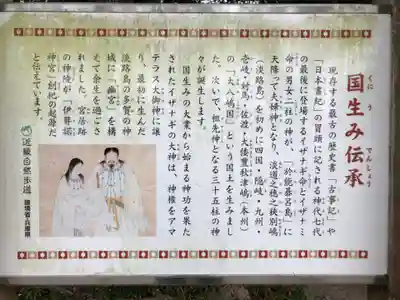 国生み伝承
くにう でんしょう
現存する最古の歴史書「古事記」や
「日本書紀」の冒頭に記される神代七代
の最後に登場するイザナギ命とイザナミ
命の男女二柱の神が、「於能碁呂島」に
天降って夫婦神となり、淡道之穂之狭別嶋
(淡路島)を初めに四国・隠岐・九州・
壱岐・対馬・佐渡・大倭豊秋津嶋(本州)
の「大八嶋国」という国土を生みまし
た。次いで、祖先神となる三十五柱の神
々が誕生します。
国生みの大業から始まる神功を果た
されたイザナギの大神は、神権をアマ
テラス大御神に譲
り、最初に生んだ
淡路島の多賀の神
域に「幽宮」を構
えて余生を過ごさ
れました。宮居跡
の神陵が「伊弉諾
神宮」創祀の起源だ
と伝えています。
近畿自然歩道
環境省・兵庫県